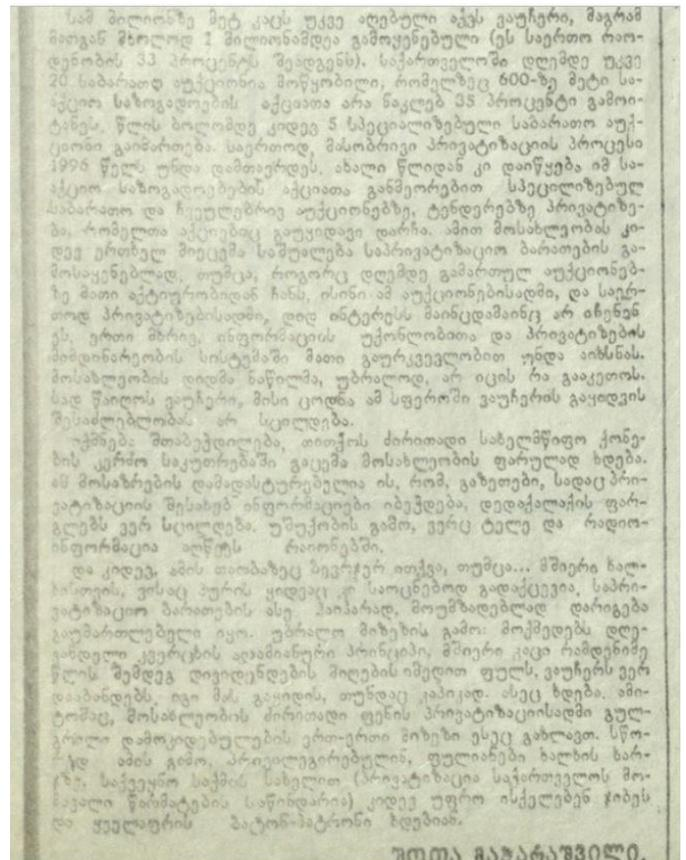 სამ მილიონზე მეტ კაცს უკვე აღებული აქვს ვაუჩერი, მაგრამ
მათგან მხოლოდ 1 მილიონამდეა გამოყენებული (ეს საერთო რაო-
დენობის 33 პროცენტს შეადგენს). საქართველოში დღემდე უკვე
20 საბარათო აუქციონია მოწყობილი, რომელზეც 600-ზე მეტი სა-
აქციო საზოგადოების აქციათა არა ნაკლებ 35 პროცენტი გამოი-
ტანეს. წლის ბოლომდე კიდევ 5 სპეციალიზებული საბარათო აუქ-
ციონი გაიმართება. საერთოდ, მასობრივი პრივატიზაციის პროცესი
1996 წელს უნდა დამთავრდეს. ახალი წლიდან კი დაიწყება იმ სა-
აქციო საზოგადოებების აქციათა განმეორებით სპეციალიზებულ
საბარათო და ჩვეულებრივ აუქციონებზე, ტენდერებზე პრივატიზე-
ბა, რომელთა აქციებიც გაუყიდავი დარჩა. ამით მოსახლეობას კი-
დევ ერთხელ მიეცემა საშუალება საპრივატიზაციო ბარათების გა-
მოსაყენებლად, თუმცა, როგორც დღემდე გამართულ აუქციონებ-
ზე მათი აქტიურობიდან ჩანს, ისინი ამ აუქციონებისადმი, და საერ-
თოდ პრივატიზებისადმი, დიდ ინტერესს მაინცდამაინც არ იჩენენ
ეს, ერთი მხრივ, ინფორმაციის უქონლობითა და პრივატიზების
მიმდინარეობის სისტემაში მათი გაურკვევლობით უნდა აიხსნას.
მოსახლეობის დიდმა ნაწილმა, უბრალოდ, არ იცის რა გააკეთოს.
სად წაიღოს ვაუჩერი, მისი ცოდნა ამ სფეროში ვაუჩერის გაყიდვის
შესაძლებლობას არ სცილდება.
იქმნება შთაბეჭდილება, თითქოს ძირითადი სახელმწიფო ქონე-
ბის კერძო საკუთრებაში გაცემა მოსახლეობის ფარულად ხდება.
ამ მოსაზრების დამადასტურებელია ის, რომ, გაზეთები, სადაც პრი-
ვატიზაციის შესახებ ინფორმაციები იბეჭდება, დედაქალაქის ფარ-
გლებს ვერ სცილდება. უშუქობის გამო, ვერც ტელე და რადიო-
ინფორმაცია აღწევს რაიონებში.
და კიდევ, ამის თაობაზეც ბევრჯერ ითქვა, თუმცა... მშიერი ხალ-
ხისთვის, ვისაც პურის ყიდვაც კი საოცნებოდ გადაქცევია, საპრი-
ვატიზაციო ბარათების ასე ჰაიჰარად, მოუმზადებლად დარიგება
გაუმართლებელი იყო. უბრალო მიზეზის გამო: მოქმედებს დღე-
ვანდელი კვერცხის ადამიანური პრინციპი, მშიერი კაცი რამდენიმე
წლის შემდეგ დივიდენდების მიღების იმედით ფულს, ვაუჩერს ვერ
დააბანდებს. იგი მას გაყიდის, თუნდაც კაპიკად. ასეც ხდება. ამი-
ტომაც, მოსახლეობის ძირითადი ფენის პრივატიზაციისადმი გულ-
გრილი დამოკიდებულების ერთ-ერთი მიზეზი ესეც გახლავთ. სწო-
რედ ამის გამო, პრივილეგირებულნი, ფულიანები ხალხის ხარ-
ჯზე, საქვეყნო საქმის სახელით (პრივატიზაცია საქართველოს მო-
მავალი წარმატების საწინდარია) კიდევ უფრო ისქელებენ ჯიბეს
და ყველაფრის ბატონ-პატრონი ხდებიან.
შოთა მაჭარაშვილი.